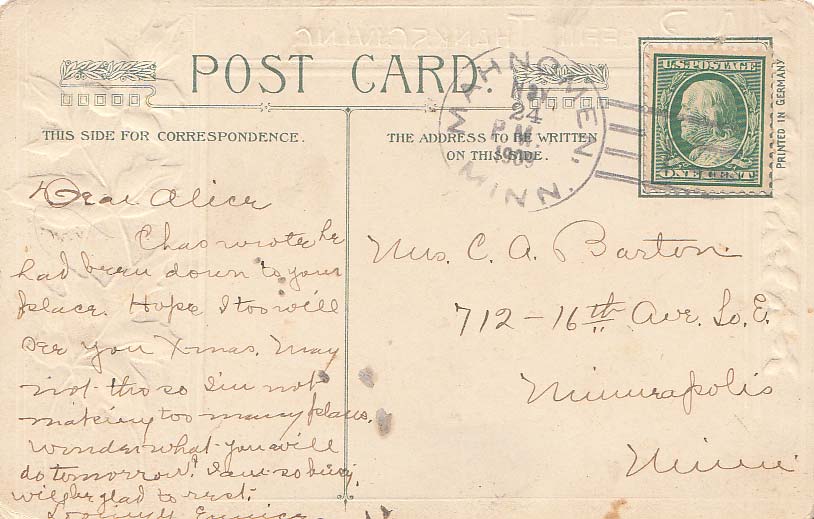 THANKSGIVING
POST CARD.
THIS SIDE FOR CORRESPONDENCE.
THE ADDRESS TO BE WRITTEN
ON THIS SIDE.
MAHNOMEN,
NOV
24
P.M.
1909
MINN.
U.S. POSTAGE
ONE CENT
PRINTED IN GERMANY
Dear Alice
Chas wrote he
had been down to your
place. Hope I too will
see you Xmas. May
not tho so I'm not
making too many plans.
Wonder what you will
do tomorrow? I am so busy,
will be glad to rest.
Lovingly Eunice
Mrs. C. A. Barton
712 - 16th Ave. So. E.
Minneapolis
Minn.